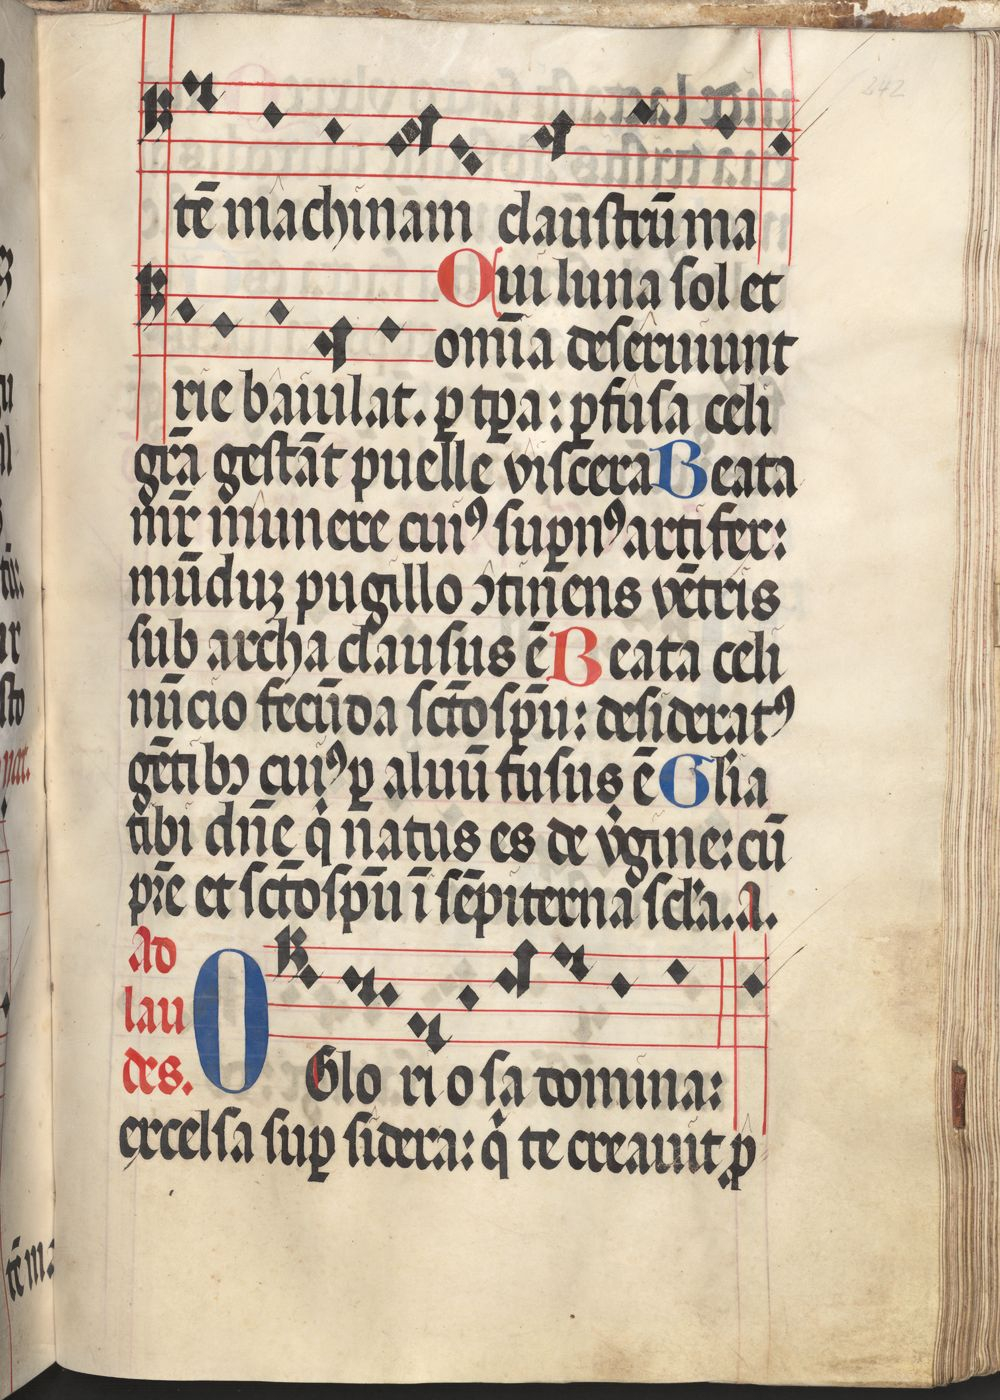 242
tē machinam claustrū ma
Qui luna sol et
om̄ia deseruiunt
rie baiulat. ꝑ tꝑa: ꝑfusa celi
gr̄a gestāt puelle viscera Beata
mr̄ munere cuiꝰ supnꝰ artifex:
mūduꝫ pugillo ↄtinens vētris
sub archa clausus ē Beata celi
nūcio fecūda sc̄to spū: desideratꝰ
gētibꝫ cuiꝰ ꝑ aluū fusus ē Gl̄ia
tibi dn̄e q̇ natus es de v̇gine: cū
pr̄e et sc̄to spū ī sēpiterna scl̄a. A.
Ad
lau
des.
O Glo ri o sa domina:
excelsa suꝑ sidera: q̄ te creauit ꝓ
tē ma